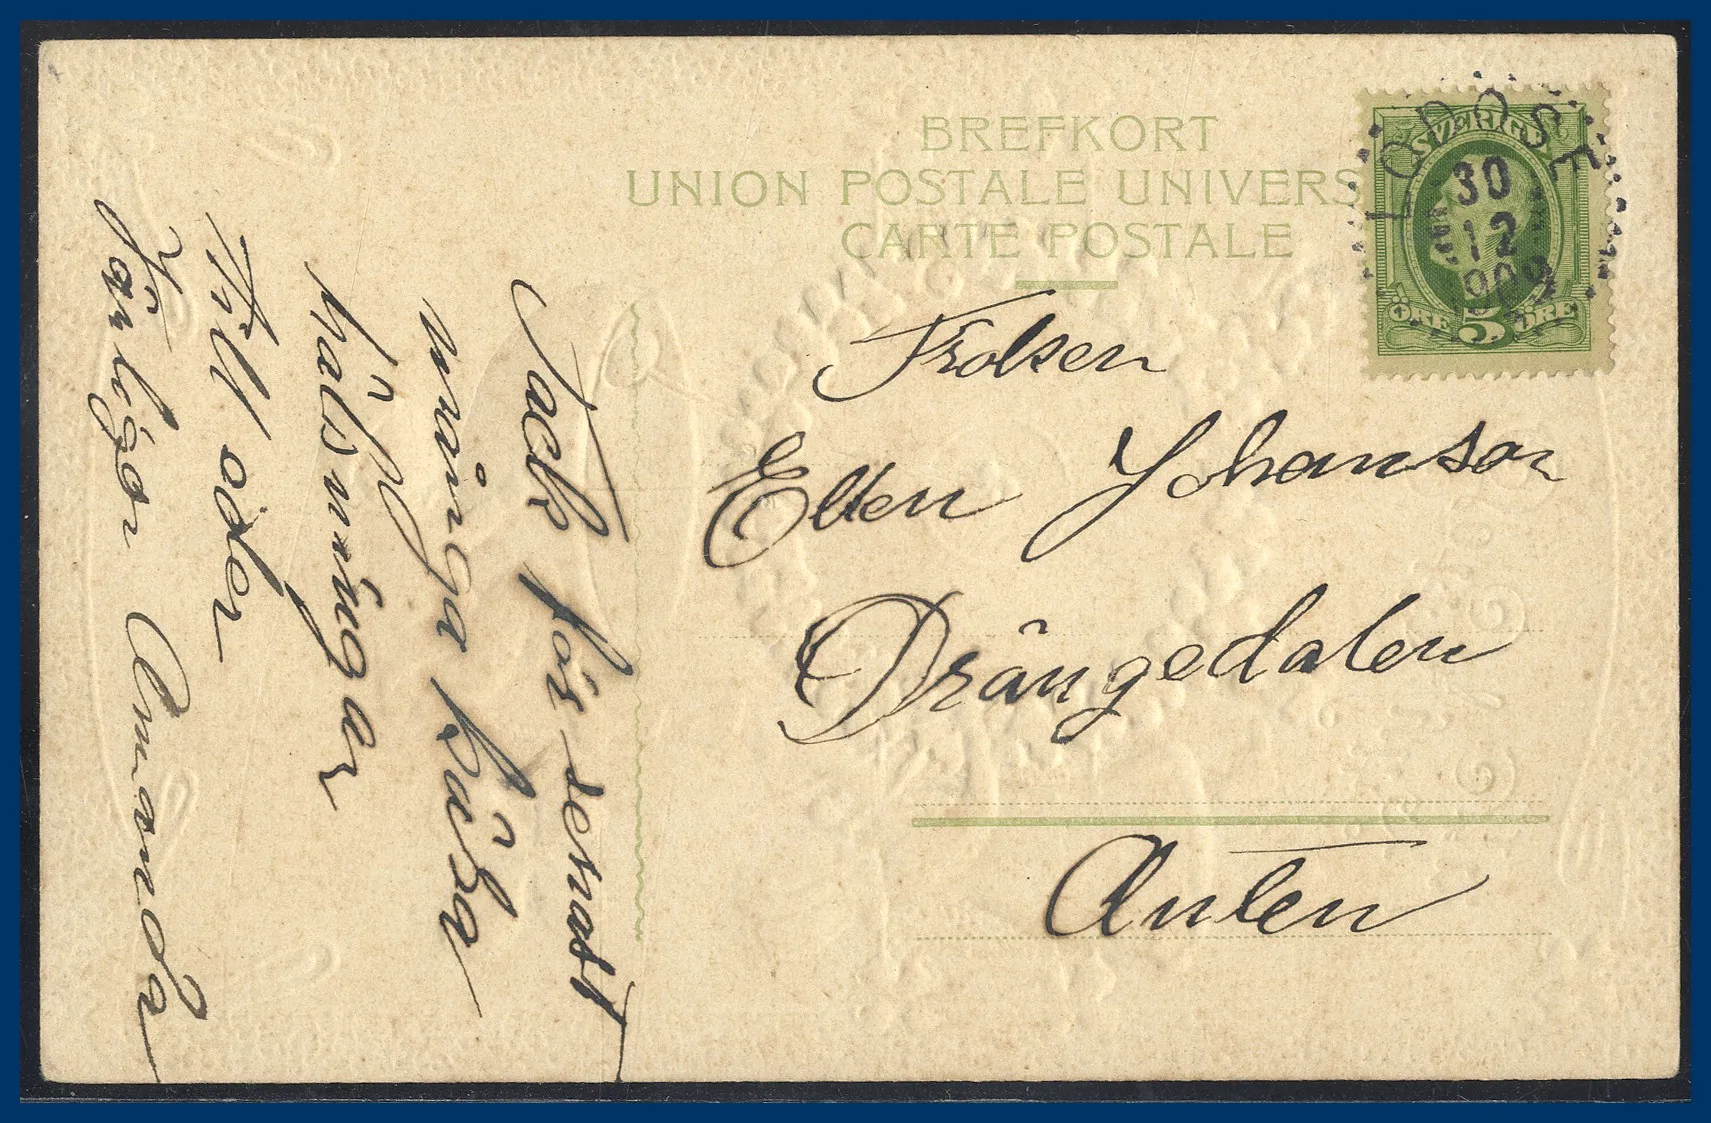 BREFKORT
UNION POSTALE UNIVERS
CARTE POSTALE
LÖDÖSE
30
12
909
SVERIGE
ÖRE 5 ÖRE
Fröken
Ellen Johanson
Drängedalen
Anten
Tack för senast
många kära
hälsningar
till eder
Amanda